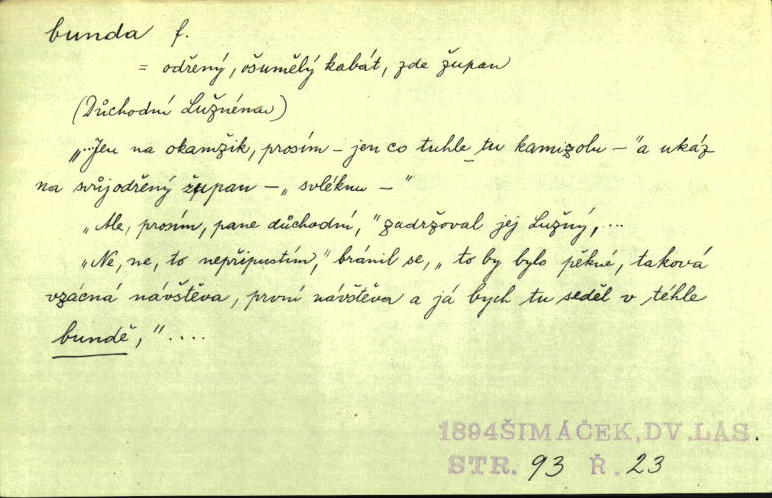 bunda f.
= odřený, ošumělý kabát, zde župan
(Důchodní Lužnému)
"..Jen na okamžik, prosím – jen co tuhle tu kamizolu –" a ukáz
na svůj odřený župan – „ svléknu – "
„Ale, prosím, pane důchodní, " zadržoval jej Lužný, ...
„Ne, ne, to nepřipustím," bránil se, „ to by bylo pěkné, taková
vzácná návštěva, první návštěva a já bych tu seděl v téhle
bundě, " ....
1894 ŠIMÁČEK, DV. LAS.
STR. 93 Ř. 23